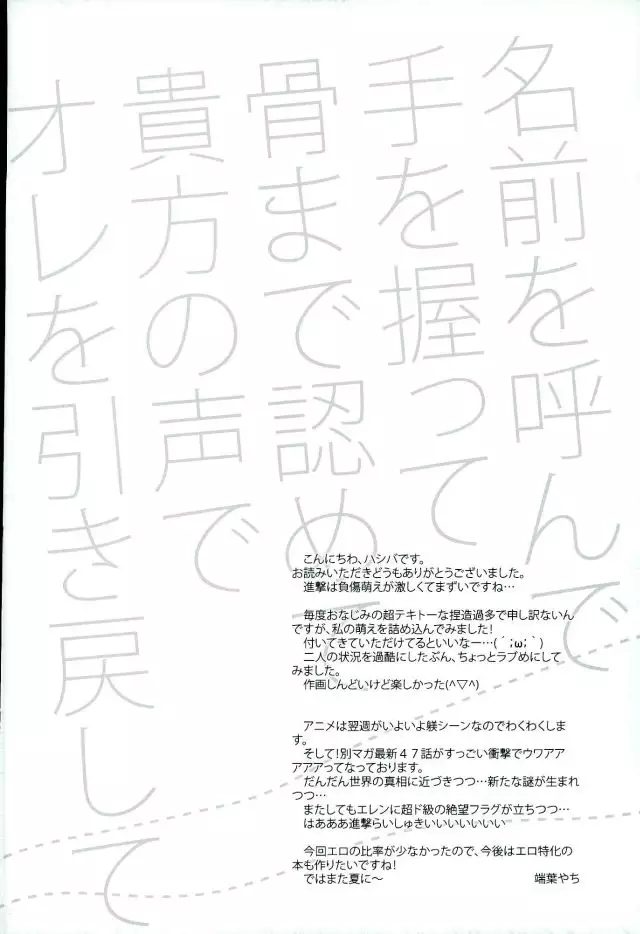 名前を呼んで
手を握って
骨まで認めて
貴方の声で
オレを引き戻して
こんにちわ、ハシバです。
お読みいただきどうもありがとうございました。
進撃は負傷萌えが激しくてまずいですね…
毎度おなじみの超テキトーな捏造過多で申し訳ないん
ですが、私の萌えを詰め込んでみました!
付いてきていただけてるといいなー…(´;ω;｀)
二人の状況を過酷にしたぶん、ちょっとラブめにして
みました。
作画しんどいけど楽しかった(^▽^)
アニメは翌週がいよいよ躾シーンなのでわくわくしま
す。
そして!別マガ最新４７話がすっごい衝撃でウワアア
アアアってなっております。
だんだん世界の真相に近づきつつ…新たな謎が生まれ
つつ…
またしてもエレンに超ド級の絶望フラグが立ちつつ…
はあああ進撃らいしゅきいいいいいいい
今回エロの比率が少なかったので、今後はエロ特化の
本も作りたいですね!
ではまた夏に～　端葉やち